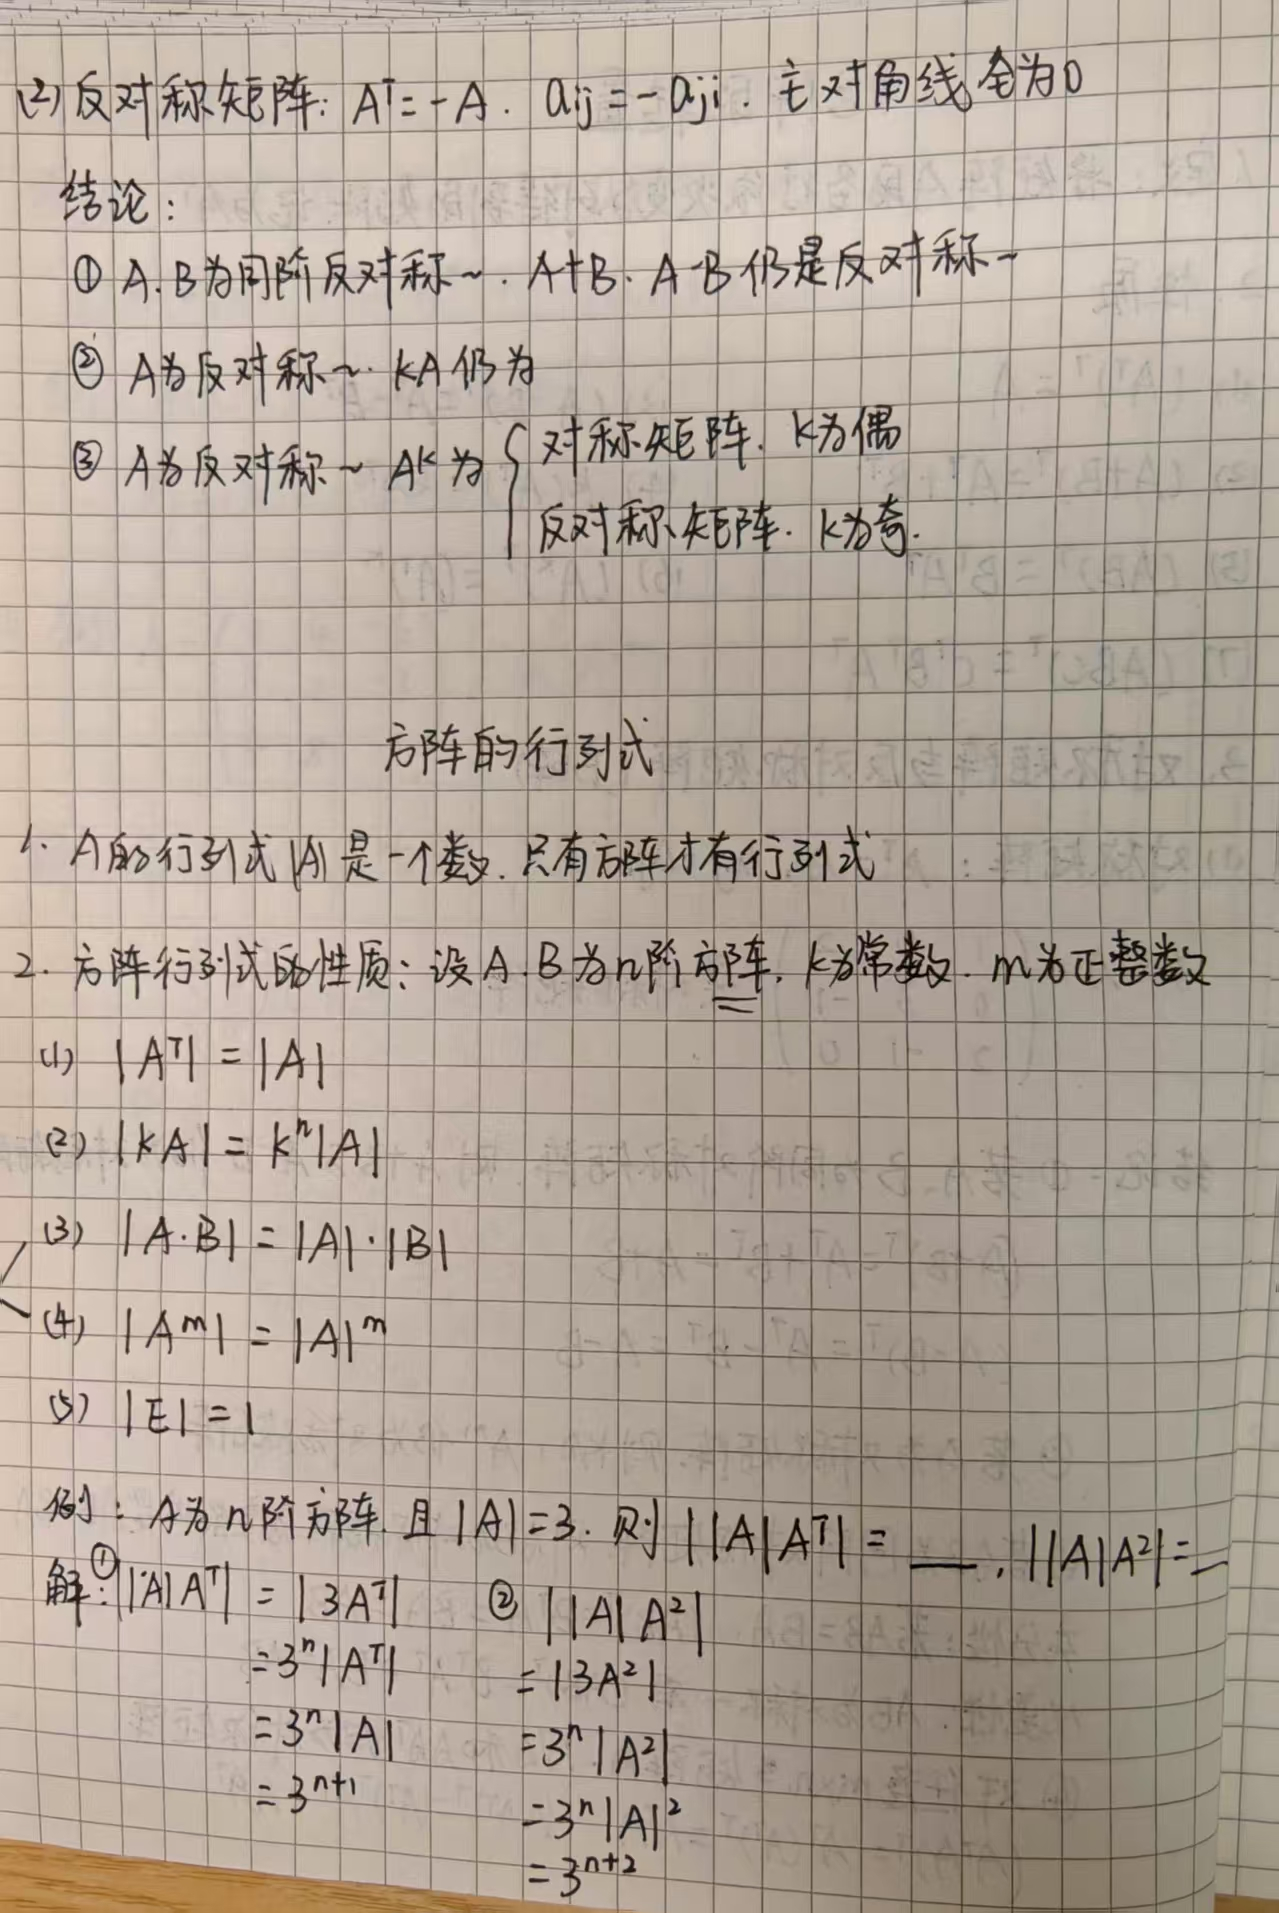 (2) 反对称矩阵: Aᵀ=-A. aij=-aji. 主对角线全为0
结论:
① A.B为同阶反对称~. A+B. A-B仍是反对称~
② A为反对称~. KA仍为
③ A为反对称~ Aᴷ为 { 对称矩阵. K为偶
反对称矩阵. K为奇.
方阵的行列式
1. A的行列式|A|是一个数. 只有方阵才有行列式
2. 方阵行列式的性质: 设A.B为n阶方阵. K为常数. m为正整数
(1) |Aᵀ| = |A|
(2) |KA| = Kⁿ|A|
(3) |A·B| = |A|·|B|
(4) |Aᵐ| = |A|ᵐ
(5) |E| = 1
例: A为n阶方阵. 且|A|=3. 则||A|Aᵀ| = __ . ||A|A²|=_
解: ① ||A|Aᵀ| = |3Aᵀ| ② ||A|A²|
=3ⁿ|Aᵀ| = |3A²|
=3ⁿ|A| =3ⁿ|A²|
=3ⁿ⁺¹ =3ⁿ|A|²
=3ⁿ⁺²